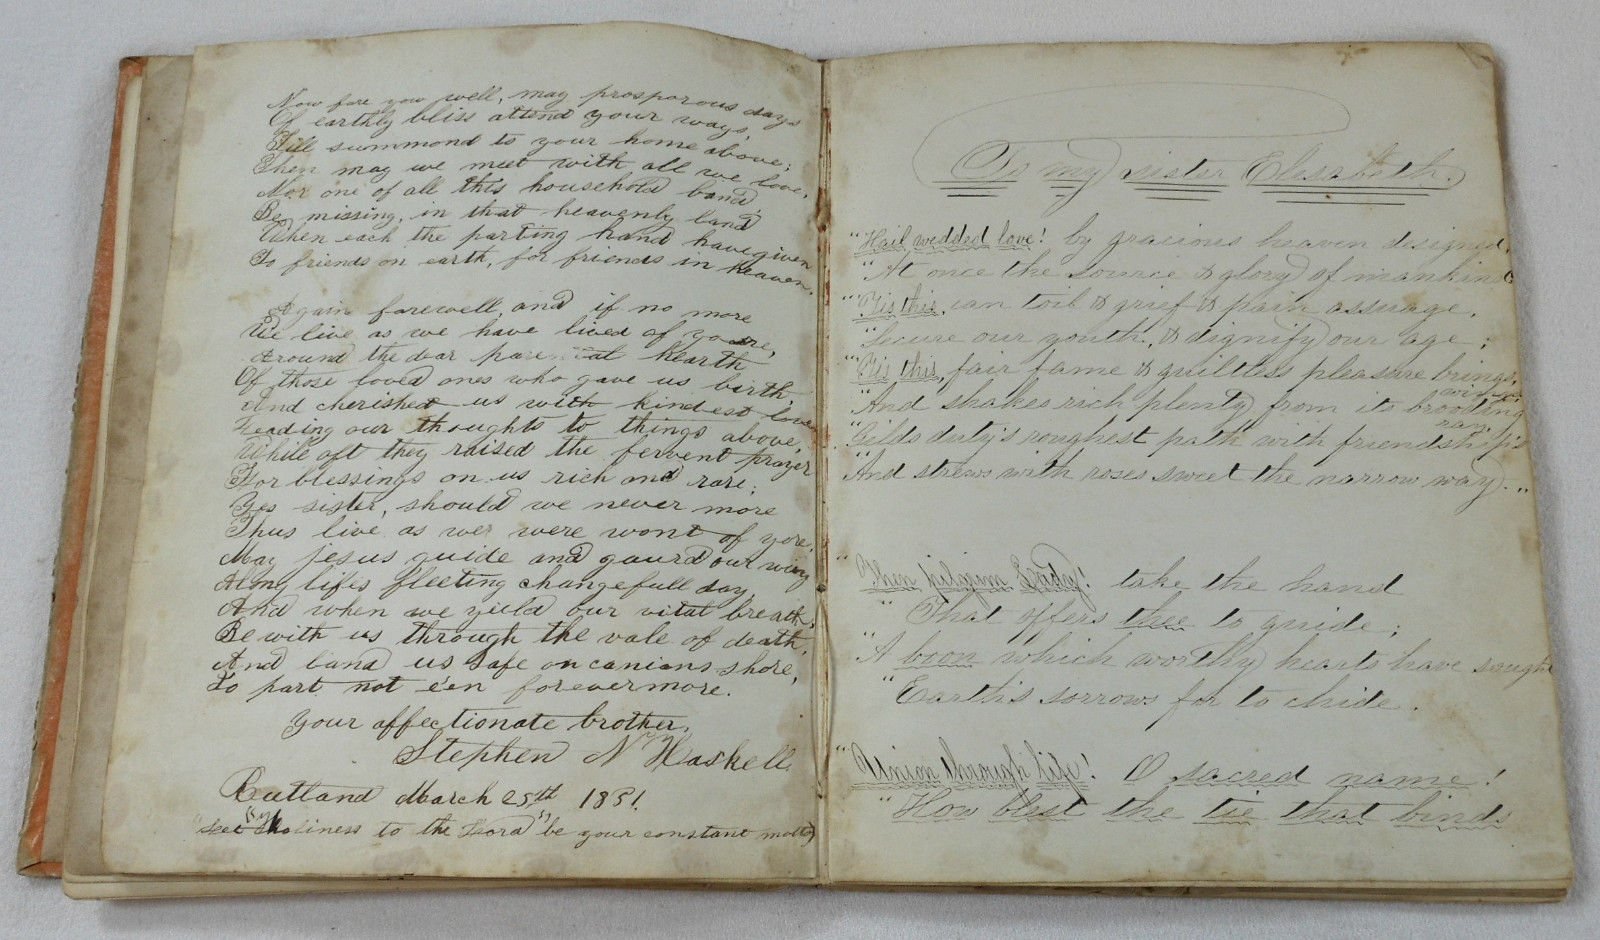 Now fare you well, may prosporous days
Of earthly bliss attend your ways,
Till summond to your home above;
Then may we meet with all we love,
Nor one of all this household band
Be missing, in that heavenly land
When each the parting hand have given
To friends on earth, for friends in heaven.
Again farewell, and if no more
We live as we have lived of yore,
Around the dear parental hearth
Of those loved ones who gave us birth,
And cherished us with kindest love,
Leading our thoughts to things above,
While oft they raised the fervent prayer
For blessings on us rich and rare;
Yes sister, should we never more
Thus live as we were wont of yore,
May Jesus guide and gaurd our way
Along lifes fleeting changefull day,
And when we yeild our vital breath,
Be with us through the vale of death,
And land us safe on canians shore,
To part not e'en forevermore.
Your affectionate brother,
Stephen N Haskell
Rutland March 25th 1851.
holiness to the Lord" be your constant motto
To my sister Elesabeth.
"Hail wedded love! by gracious heaven designed,
"At once the source & glory of mankind
"'Tis this, can toil & grief & pain assuage,
"Secure our youth, & dignify our age;
"'Tis this, fair fame & guiltless pleasure brings,
"And shakes rich plenty from its brooding wings
"Gilds duty's roughest path with friendship's ray
"And strews with roses sweet the narrow way."
"Then pilgrim Lady! take the hand
"That offers thee to guide;
"A boon which worthy hearts have saught
"Earth's sorrows for to chide.
"Union through life! O sacred name!
"How blest the tie that binds